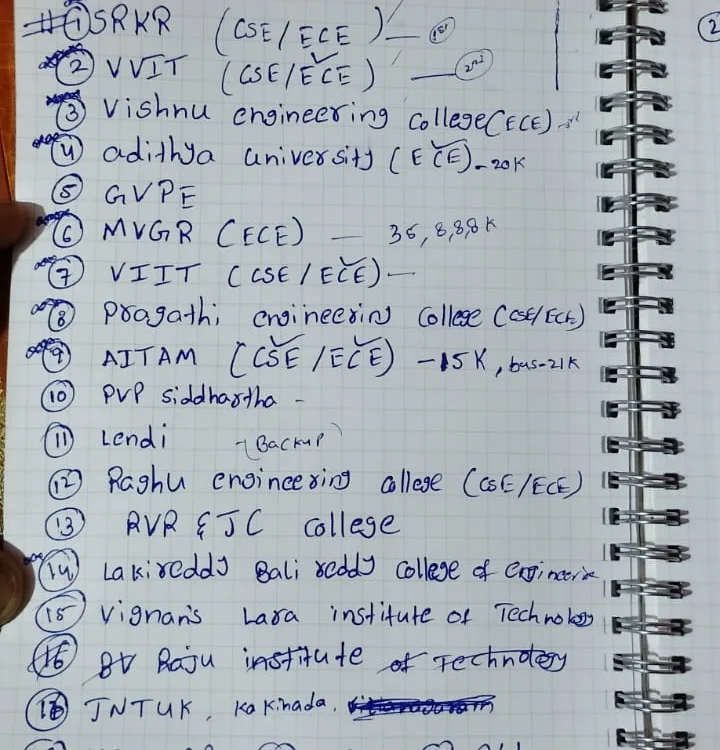 #① SRKR (CSE/ECE) — 1st
② VVIT (CSE/ECE) — 2nd
③ Vishnu engineering college (ECE) -
④ adithya university (ECE) - 20K
⑤ GVPE
⑥ MVGR (ECE) — 36,8,8,8K
⑦ VIIT (CSE/ECE) —
⑧ Pragathi engineering College (CSE/ECE)
⑨ AITAM (CSE/ECE) - 15K, bus-21K
⑩ PVP siddhartha -
⑪ Lendi - (Backup)
⑫ Raghu engineering college (CSE/ECE)
⑬ RVR & JC college
⑭ Lakireddy Bali reddy college of engineerin
⑮ Vignan's Lara institute of Technology
⑯ Raju institute of Technology
JNTUK, Kakinada.
2